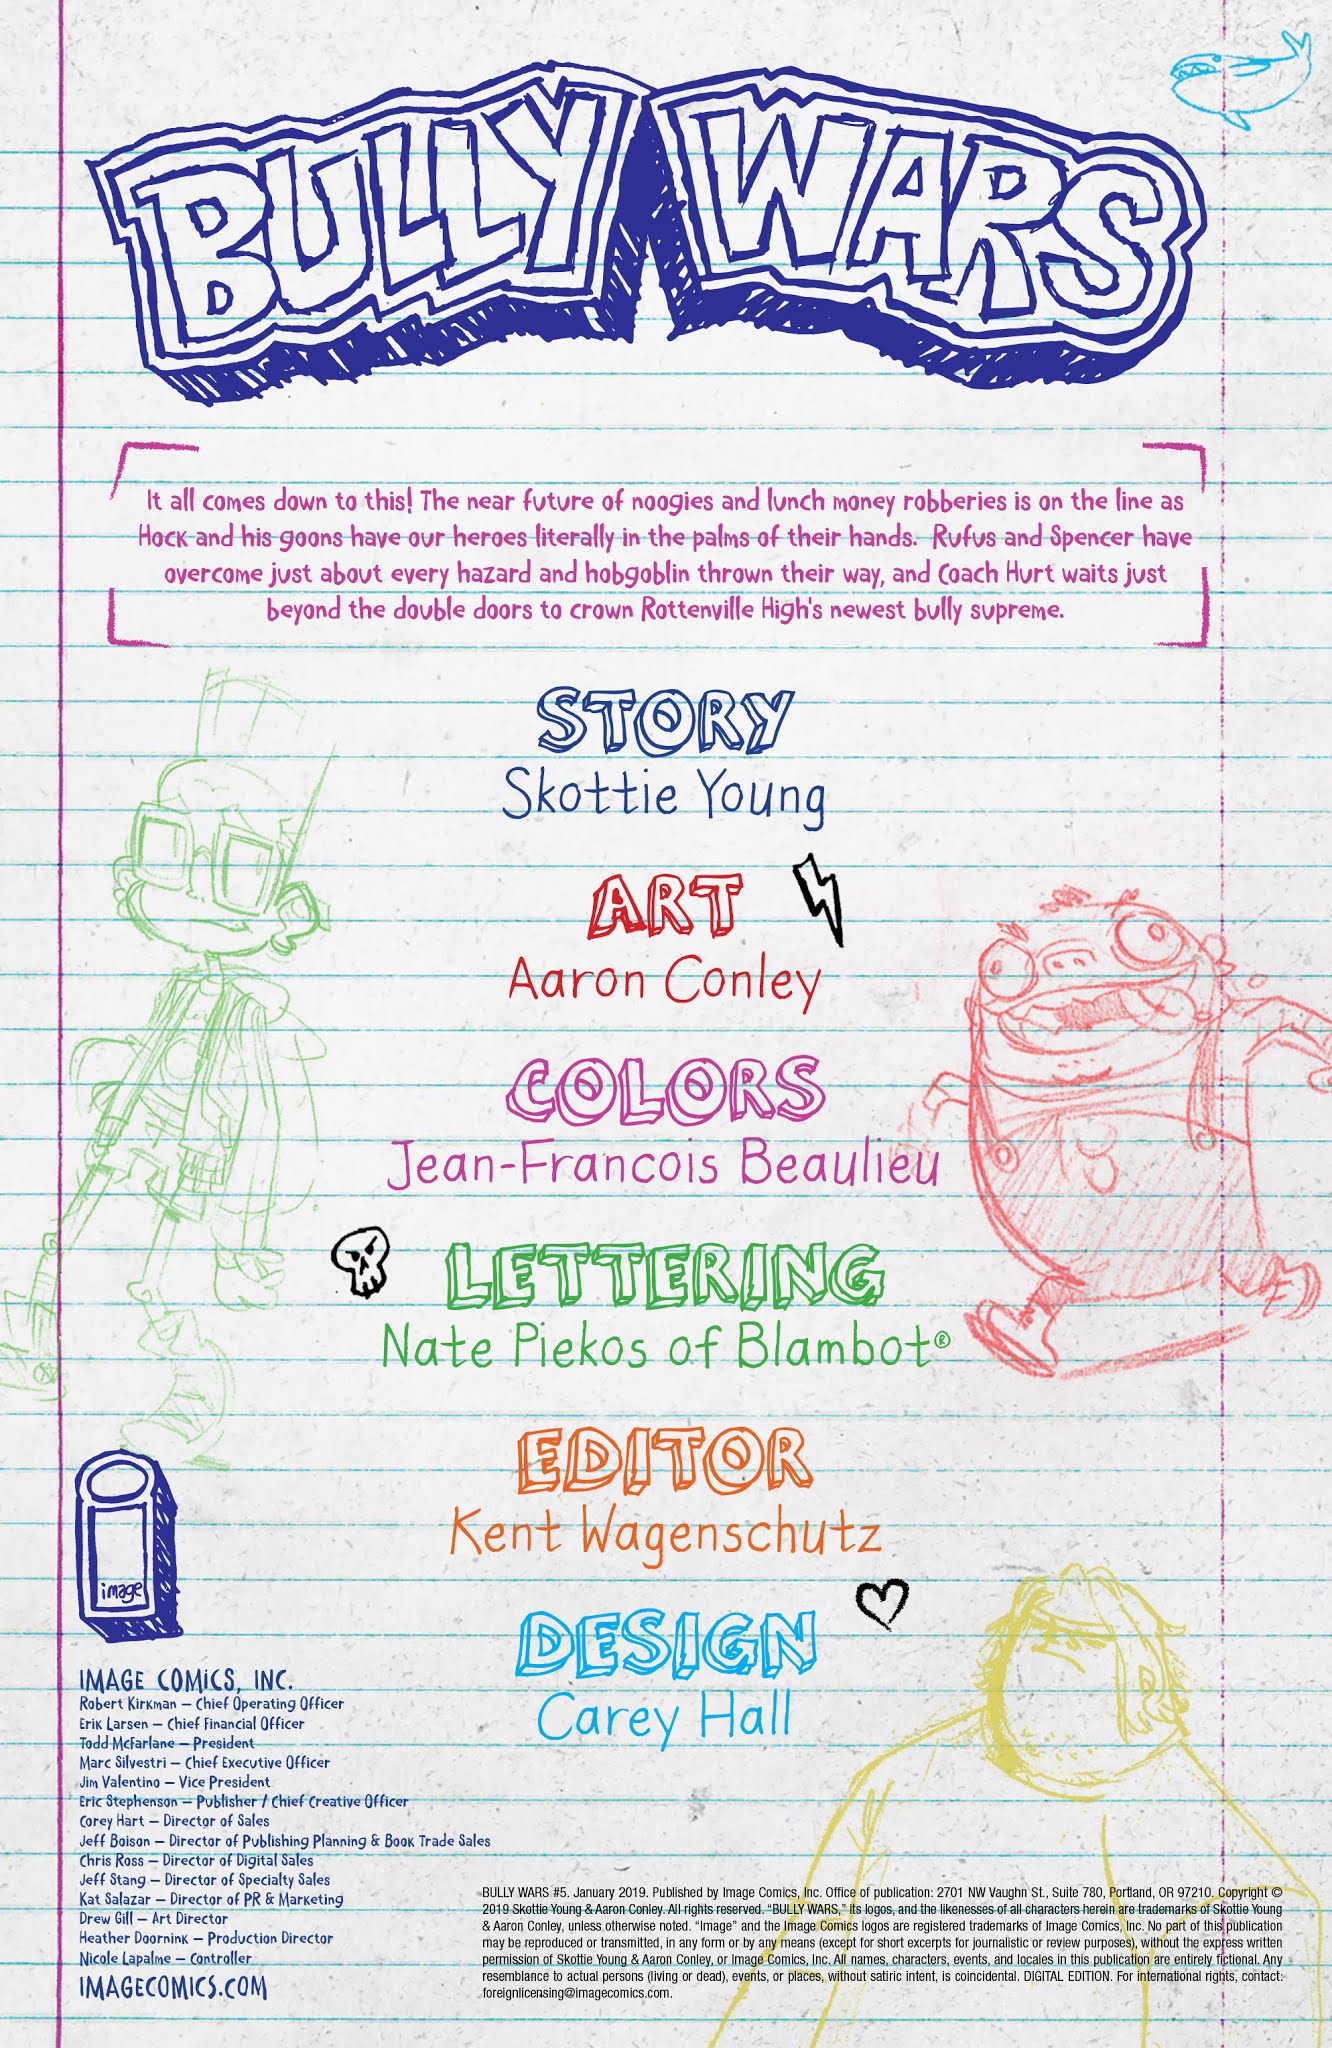 BULLY WARS
It all comes down to this! The near future of noogies and lunch money robberies is on the line as
Hock and his goons have our heroes literally in the palms of their hands. Rufus and Spencer have
overcome just about every hazard and hobgoblin thrown their way, and Coach Hurt waits just
beyond the double doors to crown Rottenville High's newest bully supreme.
STORY
Skottie Young
ART
Aaron Conley
COLORS
Jean-Francois Beaulieu
LETTERING
Nate Piekos of Blambot®
EDITOR
Kent Wagenschutz
DESIGN
Carey Hall
image
IMAGE COMICS, INC.
Robert Kirkman — Chief Operating Officer
Erik Larsen — Chief Financial Officer
Todd McFarlane — President
Marc Silvestri — Chief Executive Officer
Jim Valentino — Vice President
Eric Stephenson — Publisher / Chief Creative Officer
Corey Hart — Director of Sales
Jeff Boison — Director of Publishing Planning & Book Trade Sales
Chris Ross — Director of Digital Sales
Jeff Stang — Director of Specialty Sales
Kat Salazar — Director of PR & Marketing
Drew Gill — Art Director
Heather Doornink — Production Director
Nicole Lapalme — Controller
IMAGECOMICS.COM
BULLY WARS #5. January 2019. Published by Image Comics, Inc. Office of publication: 2701 NW Vaughn St., Suite 780, Portland, OR 97210. Copyright ©
2019 Skottie Young & Aaron Conley. All rights reserved. “BULLY WARS,” its logos, and the likenesses of all characters herein are trademarks of Skottie Young
& Aaron Conley, unless otherwise noted. “Image” and the Image Comics logos are registered trademarks of Image Comics, Inc. No part of this publication
may be reproduced or transmitted, in any form or by any means (except for short excerpts for journalistic or review purposes), without the express written
permission of Skottie Young & Aaron Conley, or Image Comics, Inc. All names, characters, events, and locales in this publication are entirely fictional. Any
resemblance to actual persons (living or dead), events, or places, without satiric intent, is coincidental. DIGITAL EDITION. For international rights, contact:
foreignlicensing@imagecomics.com.